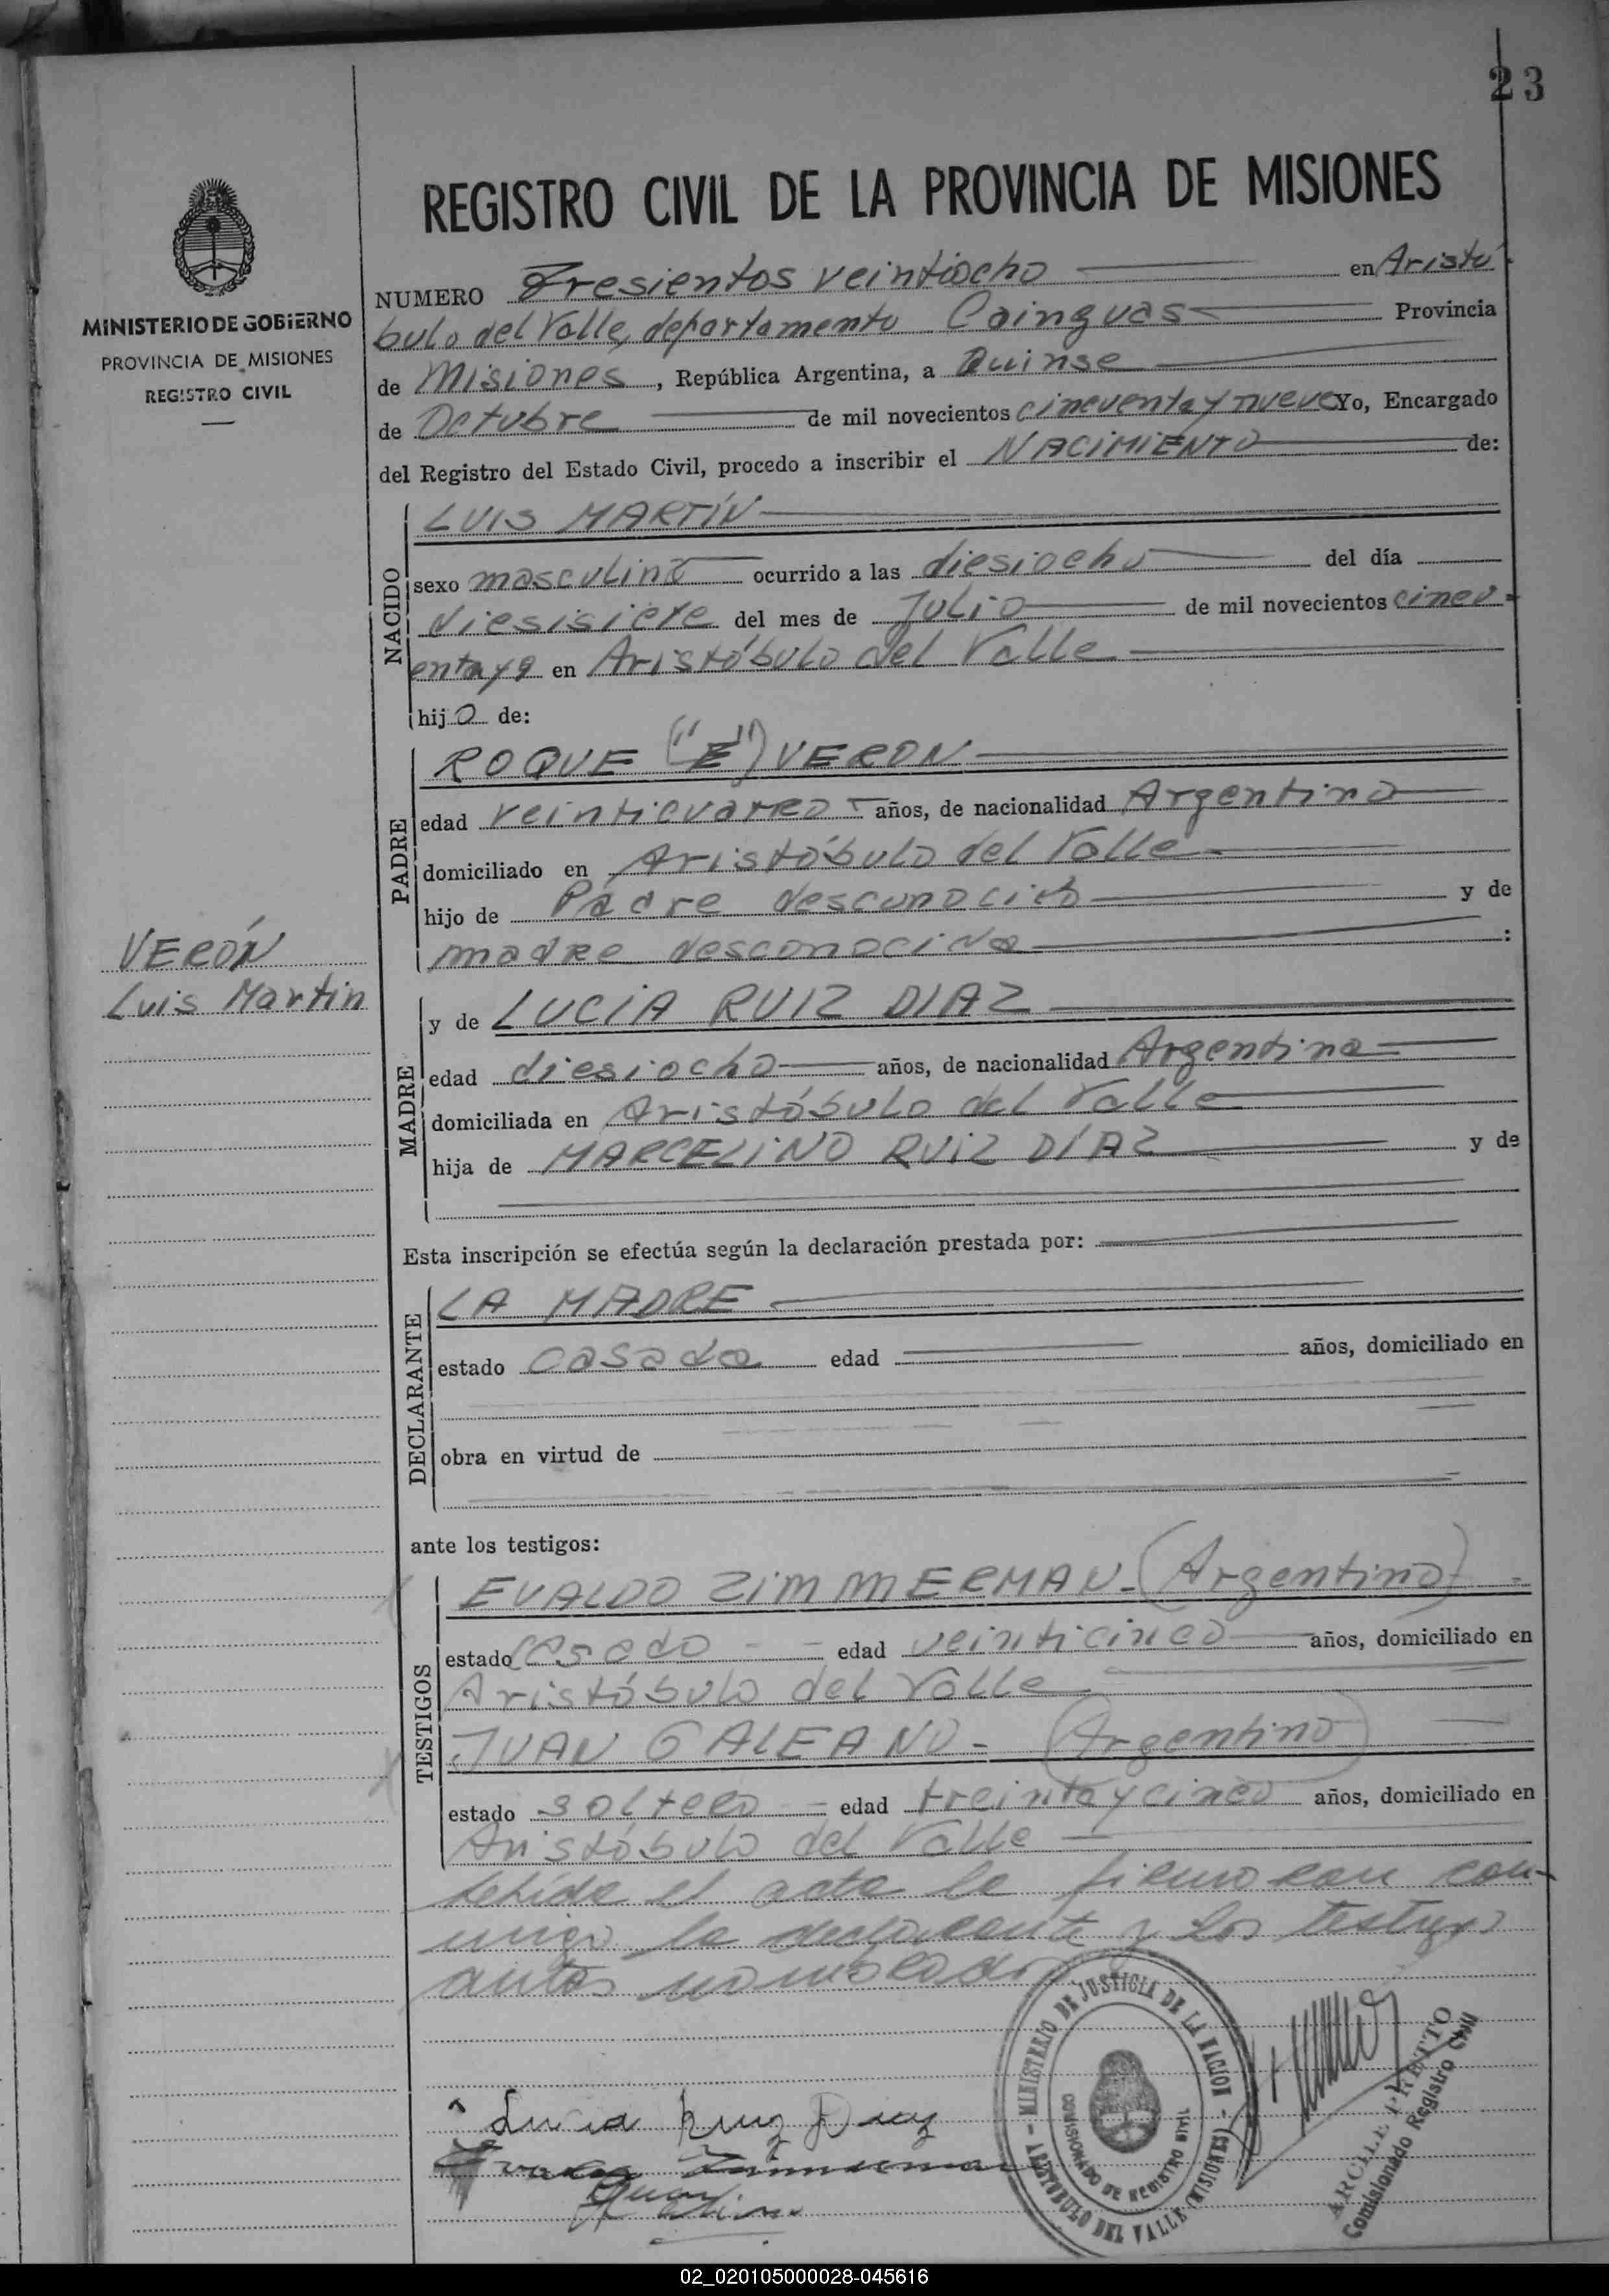 23
REGISTRO CIVIL DE LA PROVINCIA DE MISIONES
MINISTERIO DE GOBIERNO
PROVINCIA DE MISIONES
REGISTRO CIVIL
NUMERO Tresientos veintiocho en Aristó
bulo del Valle, departamento Cainguas Provincia
de Misiones, República Argentina, a Quinse
de Octubre de mil novecientos cincuenta y nueve Yo, Encargado
del Registro del Estado Civil, procedo a inscribir el NACIMIENTO de:
NACIDO
LUIS MARTÍN
sexo masculino ocurrido a las diesiocho del día
diesisiete del mes de Julio de mil novecientos cincu
enta y 9 en Aristóbulo del Valle
hijo de:
PADRE
ROQUE ("E") VERON
edad veinticuatro años, de nacionalidad Argentino
domiciliado en Aristóbulo del Valle
hijo de Padre desconocido y de
madre desconocida :
VERÓN
Luis Martin
MADRE
y de LUCÍA RUIZ DIAZ
edad diesiocho años, de nacionalidad Argentina
domiciliada en Aristóbulo del Valle
hija de MARCELINO RUIZ DÍAZ y de
Esta inscripción se efectúa según la declaración prestada por:
DECLARANTE
LA MADRE
estado casada edad años, domiciliado en
obra en virtud de
ante los testigos:
TESTIGOS
EVALDO ZIMMERMAN - (Argentino)
estado casado edad veinticinco años, domiciliado en
Aristóbulo del Valle
JUAN GALEANO - (Argentino)
estado soltero edad treinta y cinco años, domiciliado en
Aristóbulo del Valle
Leída el acta la firmaron con-
migo la declarante y los testigos
antes nombrados
MINISTERIO DE JUSTICIA DE LA NACION
COMISIONADO DE REGISTRO CIVIL
ARISTOBULO DEL VALLE (MISIONES)
Comisionado Registro Civil
Lucia Ruiz Diaz
Zimmerman
Juan
02_020105000028-045616